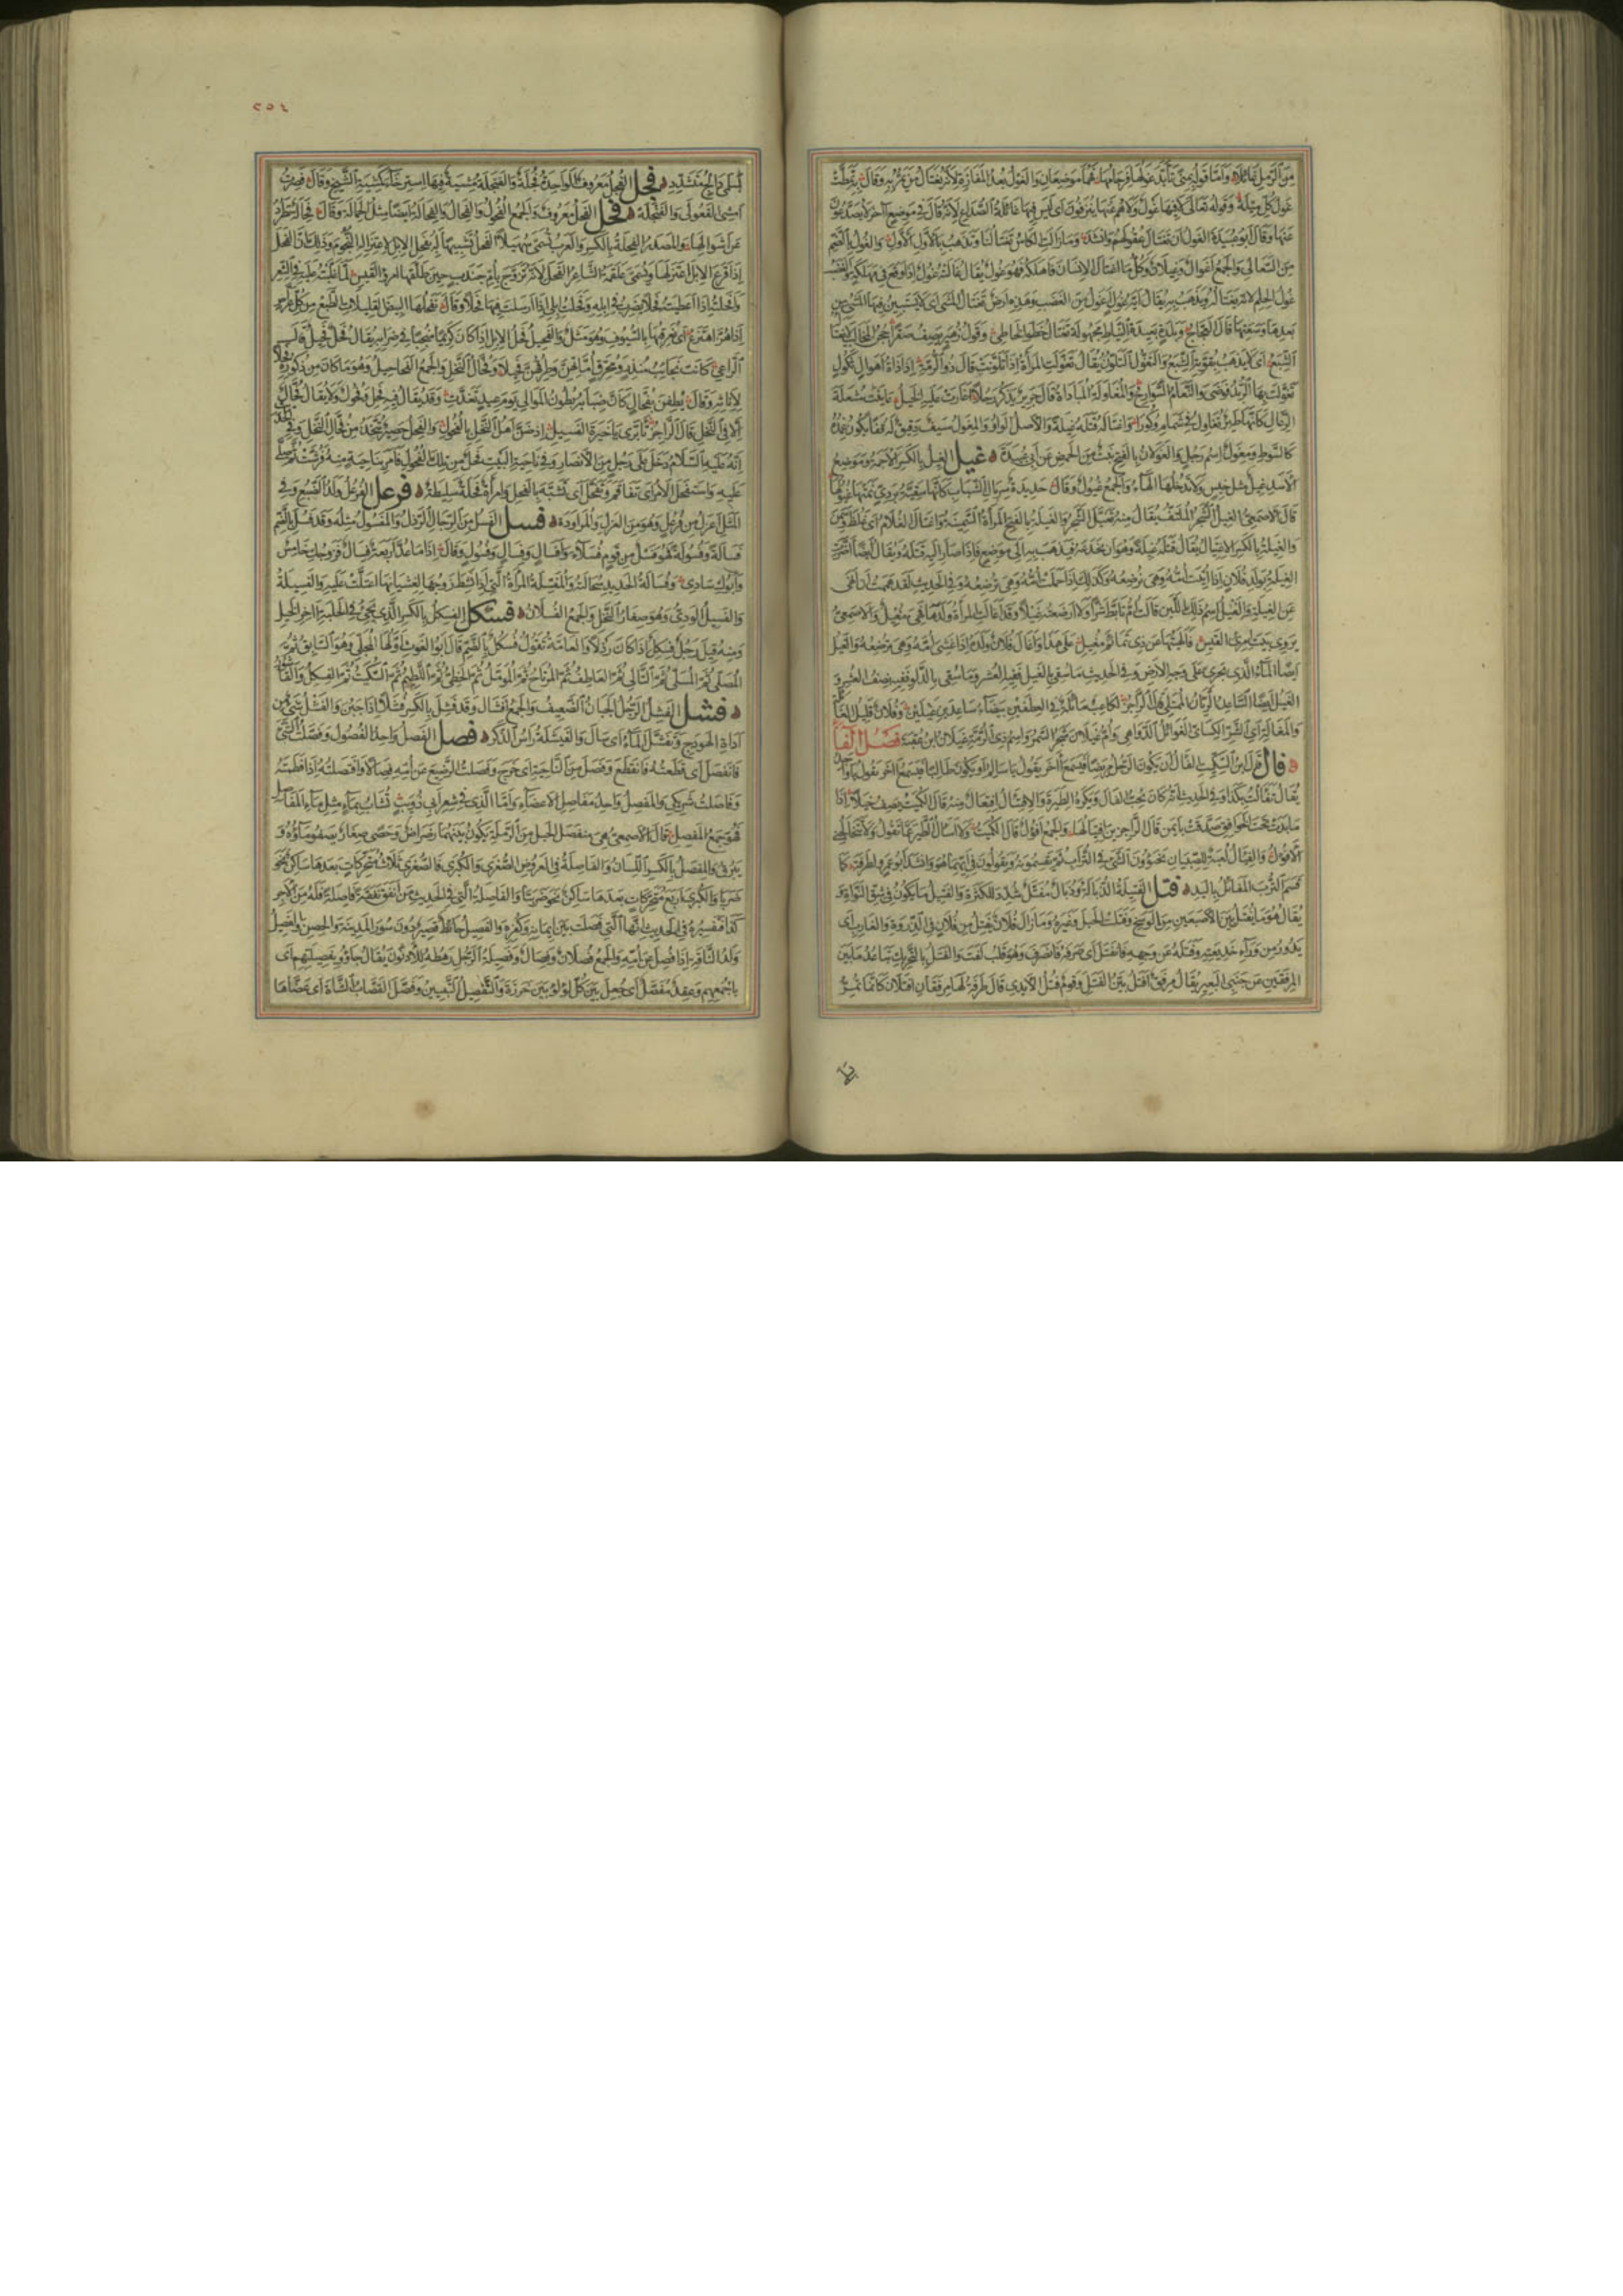 من الرمل غائلا وأما قول لبيد بمنى تأبد غولها فرجامها فهما موضعان والغول بعد المفازة لأنه يغتال من يمر به وقال به تمطت
غول كل ميله وقوله تعالى لا فيها غول ولا هم عنها ينزفون أي ليس فيها غائلة الصداع لأنه قال في موضع آخر لا يصدعون
عنها وقال أبو عبيدة الغول أن تغتال عقولهم وأنشد وما زالت الكأس تغتالنا وتذهب بالأول الأول والغول بالضم
من السعالي والجمع أغوال وغيلان وكل ما اغتال الإنسان فأهلكه فهو غول يقال غالته غول إذا وقع في مهلكة والغضب
غول الحلم لأنه يغتاله ويذهب به يقال أية غول أغول من الغضب وهذه أرض تغتال المشي أي لا يستبين فيها المشي من
بعدها وسعتها قال العجاج وبلدة بعيدة النياط مجهولة تغتال خطو الخاطي وقول زهير يصف صقرا حجن المخالب لا يغتاله
الشبع أي لا يذهب بقوته الشبع والتغول التلون يقال تغولت المرأة إذا تلونت قال ذو الرمة إذا ذات أهوال ثكول
تغولت بها الربد فوضى والنعام السوارح والمغاولة المبادأة قال جرير يذكر رجلا أغارت عليه الخيل عاينت مشعلة
الرعال كأنها طير تغاول في شمام وكورا واغتاله قتله غيلة والأصل الواو والمغول سيف دقيق له قفا يكون غمده
كالسوط ومغول اسم رجل والغولان بالفتح نبت من الحمض عن أبي عبيدة غيل الغيل بالكسر الأجمة وموضع
الأسد غيل مثل خيس ولا تدخلها الهاء والجمع غيول وقال حديدة سربال الشباب كأنها سقية بردي نمتها غيولها
قال الأصمعي الغيل الشجر الملتف يقال منه تغيل الشجر والغيلة بالفتح المرأة السمينة واغتال الغلام أي غلظ وسمن
والغيلة بالكسر الاغتيال يقال قتله غيلة وهو أن يخدعه فيذهب به إلى موضع فإذا صار إليه قتله ويقال أيضا أضرت
الغيلة بولد فلان إذا أتيت أمه وهي ترضعه وكذلك إذا حملت أمه وهي ترضعه وفي الحديث لقد هممت أن أنهى
عن الغيلة والغيل اسم ذلك اللبن قالت أم تأبط شرا ولا أرضعته غيلا وقد أغالت المرأة ولدها فهي مغيل والأصمعي
يروي بيت امرئ القيس فألهيتها عن ذي تمائم مغيل على هذا وأغال فلان ولده إذا غشي أمه وهي ترضعه والغيل
أيضا الماء الذي يجري على وجه الأرض وفي الحديث ما سقي بالغيل ففيه العشر وما سقي بالدلو ففيه نصف العشر و
الغيل أيضا الساعد الريان الممتلئ قال الراجز لكاعب مائلة في العطفين بيضاء ساعدين غيلين وفلان قليل الغائلة
والمغالة أي الشر الكسائي الغوائل الدواهي وأم غيلان شجر السمر واسم ذي الرمة غيلان بن عقبة فصل الفاء
فال قال ابن السكيت الفأل أن يكون الرجل مريضا فيسمع آخر يقول يا سالم أو يكون طالبا فيسمع آخر يقول يا واجد
يقال تفألت بكذا وفي الحديث أنه كان يحب الفأل ويكره الطيرة والافتئال افتعال منه قال الكميت يصف خيلا إذا
ما بدت تحت الخوافق صدقت بأيمن فال الزاجرين افتئالها والجمع أفؤل قال الكميت ولا أسأل الطير عما تقول ولا تتخالجني
الأفؤل والفئال لعبة للصبيان يخبؤون الشيء في التراب ثم يقسمونه ويقولون في أيهما هو وأنشد أبو عمرو لطرفة كما
قسم الترب المفائل باليد فتل الفتيلة الذبالة وذبال مفتل شدد للكثرة والفتيل ما يكون في شق النواة و
يقال هو ما يفتل بين الأصبعين من الوسخ وفتلت الحبل وغيره وما زال فلان يفتل من فلان في الذروة والغارب أي
يدور من وراء خديعته وفتله عن وجهه فانفتل أي صرفه فانصرف وهو قلب لفت والفتل بالتحريك تباعد ما بين
المرفقين عن جنبي البعير يقال مرفق أفتل بين الفتل وقوم فتل الأيدي قال طرفة لها مرفقان أفتلان كأنما تمر
٢٥٤
بسلمي دالج متشدد فجل الفجل معروف الواحدة فجلة والفنجلة مشية فيها استرخاء كمشية الشيخ وقال فصرت
أمشي القعولى والفنجلة فحل الفحل معروف والجمع الفحول والفحال والفحالة أيضا مثل الجمالة وقال فحالة تطرد
عن أشوالها والمصدر الفحلة بالكسر والعرب تسمي سهيلا الفحل تشبيها له بفحل الإبل لاعتزاله النجوم وذلك أن الفحل
إذا قرع الإبل اعتزلها ويسمى علقمة الشاعر الفحل لأنه تزوج بأم جندب حين طلقها امرؤ القيس لما غلبت عليه في الشعر
وأفحلته إذا أعطيته فحلا يضرب في إبله وفحلت إبلي إذا أرسلت فيها فحلا وقال نفحلها البيض القليلات الطبع من كل عراص
إذا هز اهتزع أي نعرقبها بالسيوف وهو مثل والفحيل فحل الإبل إذا كان كريما منجبا في ضرابه يقال فحل فحيل قال
الراعي كانت نجائب منذر ومحرق أماتهن وطرقهن فحيلا وفحال النخل والجمع الفحاحيل وهو ما كان من ذكوره فحلا
لإناثه وقال يطفن بفحال كأن ضبابه بطون الموالي يوم عيد تغدت وقد يقال فيه فحل وفحول ولا يقال فحال
إلا في النخل قال الراجز تأبري يا خيرة الفسيل إذ ضن أهل النخل بالفحول والفحل حصير تتخذ من فحال النخل وفي الحديث
أنه عليه السلام دخل على رجل من الأنصار وفي ناحية البيت فحل من تلك الفحول فأمر بناحية منه فرشت ثم صلى
عليه واستفحل الأمر أي تفاقم وتفحل أي تشبه بالفحل وامرأة فحلة سليطة فرعل الفرعل ولد الضبع وفي
المثل أغزل من فرعل وهو من الغزل والمراودة فسل الفسل من الرجال الرذل والمفسول مثله وقد فسل بالضم
فسالة وفسولة فهو فسل من قوم فسلاء وأفسال وفسال وفسول وقال إذا ما عد أربعة فسال فزوجك خامس
وأبوك سادي وفسالة الحديد سحالته والمفسلة المرأة التي إذا نشط زوجها لغشيانها اعتلت عليه والفسيلة
والفسيل الودي وهو صغار النخل والجمع الفسلان فسكل الفسكل بالكسر الذي يجيء في الحلبة آخر الخيل
ومنه قيل رجل فسكل إذا كان رذلا والعامة تقول فسكل بالضم قال أبو الغوث أولها المجلي وهو السابق ثم
المصلي ثم المسلي ثم التالي ثم العاطف ثم المرتاح ثم المؤمل ثم الحظي ثم اللطيم ثم السكيت ثم الفسكل والقاشور
فشل الفشل الرجل الجبان الضعيف والجمع أفشال وقد فشل بالكسر فشلا إذا جبن والفشل شيء من
أداة الهودج وتفشل الماء أي سال والفيشلة رأس الذكر فصل الفصل واحد الفصول وفصلت الشيء
فانفصل أي قطعته فانقطع وفصل من الناحية أي خرج وفصلت الرضيع عن أمه فصالا وافتصلته إذا فطمته
وفاصلت شريكي والمفصل واحد مفاصل الأعضاء وأما الذي في شعر أبي ذؤيب تشاب بماء مثل ماء المفاصل
فهو جمع المفصل قال الأصمعي هي منفصل الجبل من الرملة يكون بينهما رضراض وحصى صغار يصفو ماؤه و
يبرق والمفصل بالكسر اللسان والفاصلة في العروض الصغرى والكبرى فالصغرى ثلاثة متحركات بعدها ساكن نحو
ضربا والكبرى أربع متحركات بعدها ساكن نحو ضربتا والفاصلة التي في الحديث من أنفق نفقة فاصلة فله من الأجر
كذا تفسيره في الحديث أنها التي فصلت بين إيمانه وكفره والفصيل حائط قصير دون سور المدينة والحصن والفصيل
ولد الناقة إذا فصل عن أمه والجمع فصلان وفصال وفصيلة الرجل رهطه الأدنون يقال جاؤوا بفصيلتهم أي
بأجمعهم وعقد مفصل أي جعل بين كل لؤلؤتين خرزة والتفصيل التبيين وفصل القصاب الشاة أي عضاها